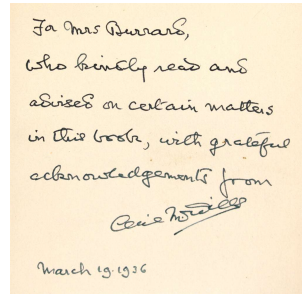 For Mrs Burrard,
who kindly read and
advised on certain matters
in this book, with grateful
acknowledgements from
March 19. 1936